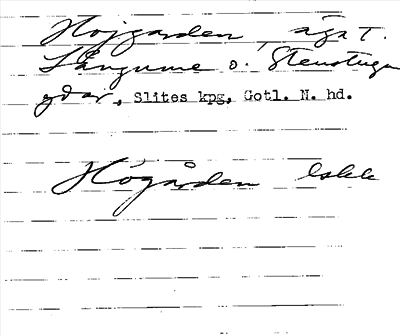 Höjgården, ägor t.
Långume o. Stenstugu
gdar, Slites kpg, Gotl. N. hd.
Högården lokk